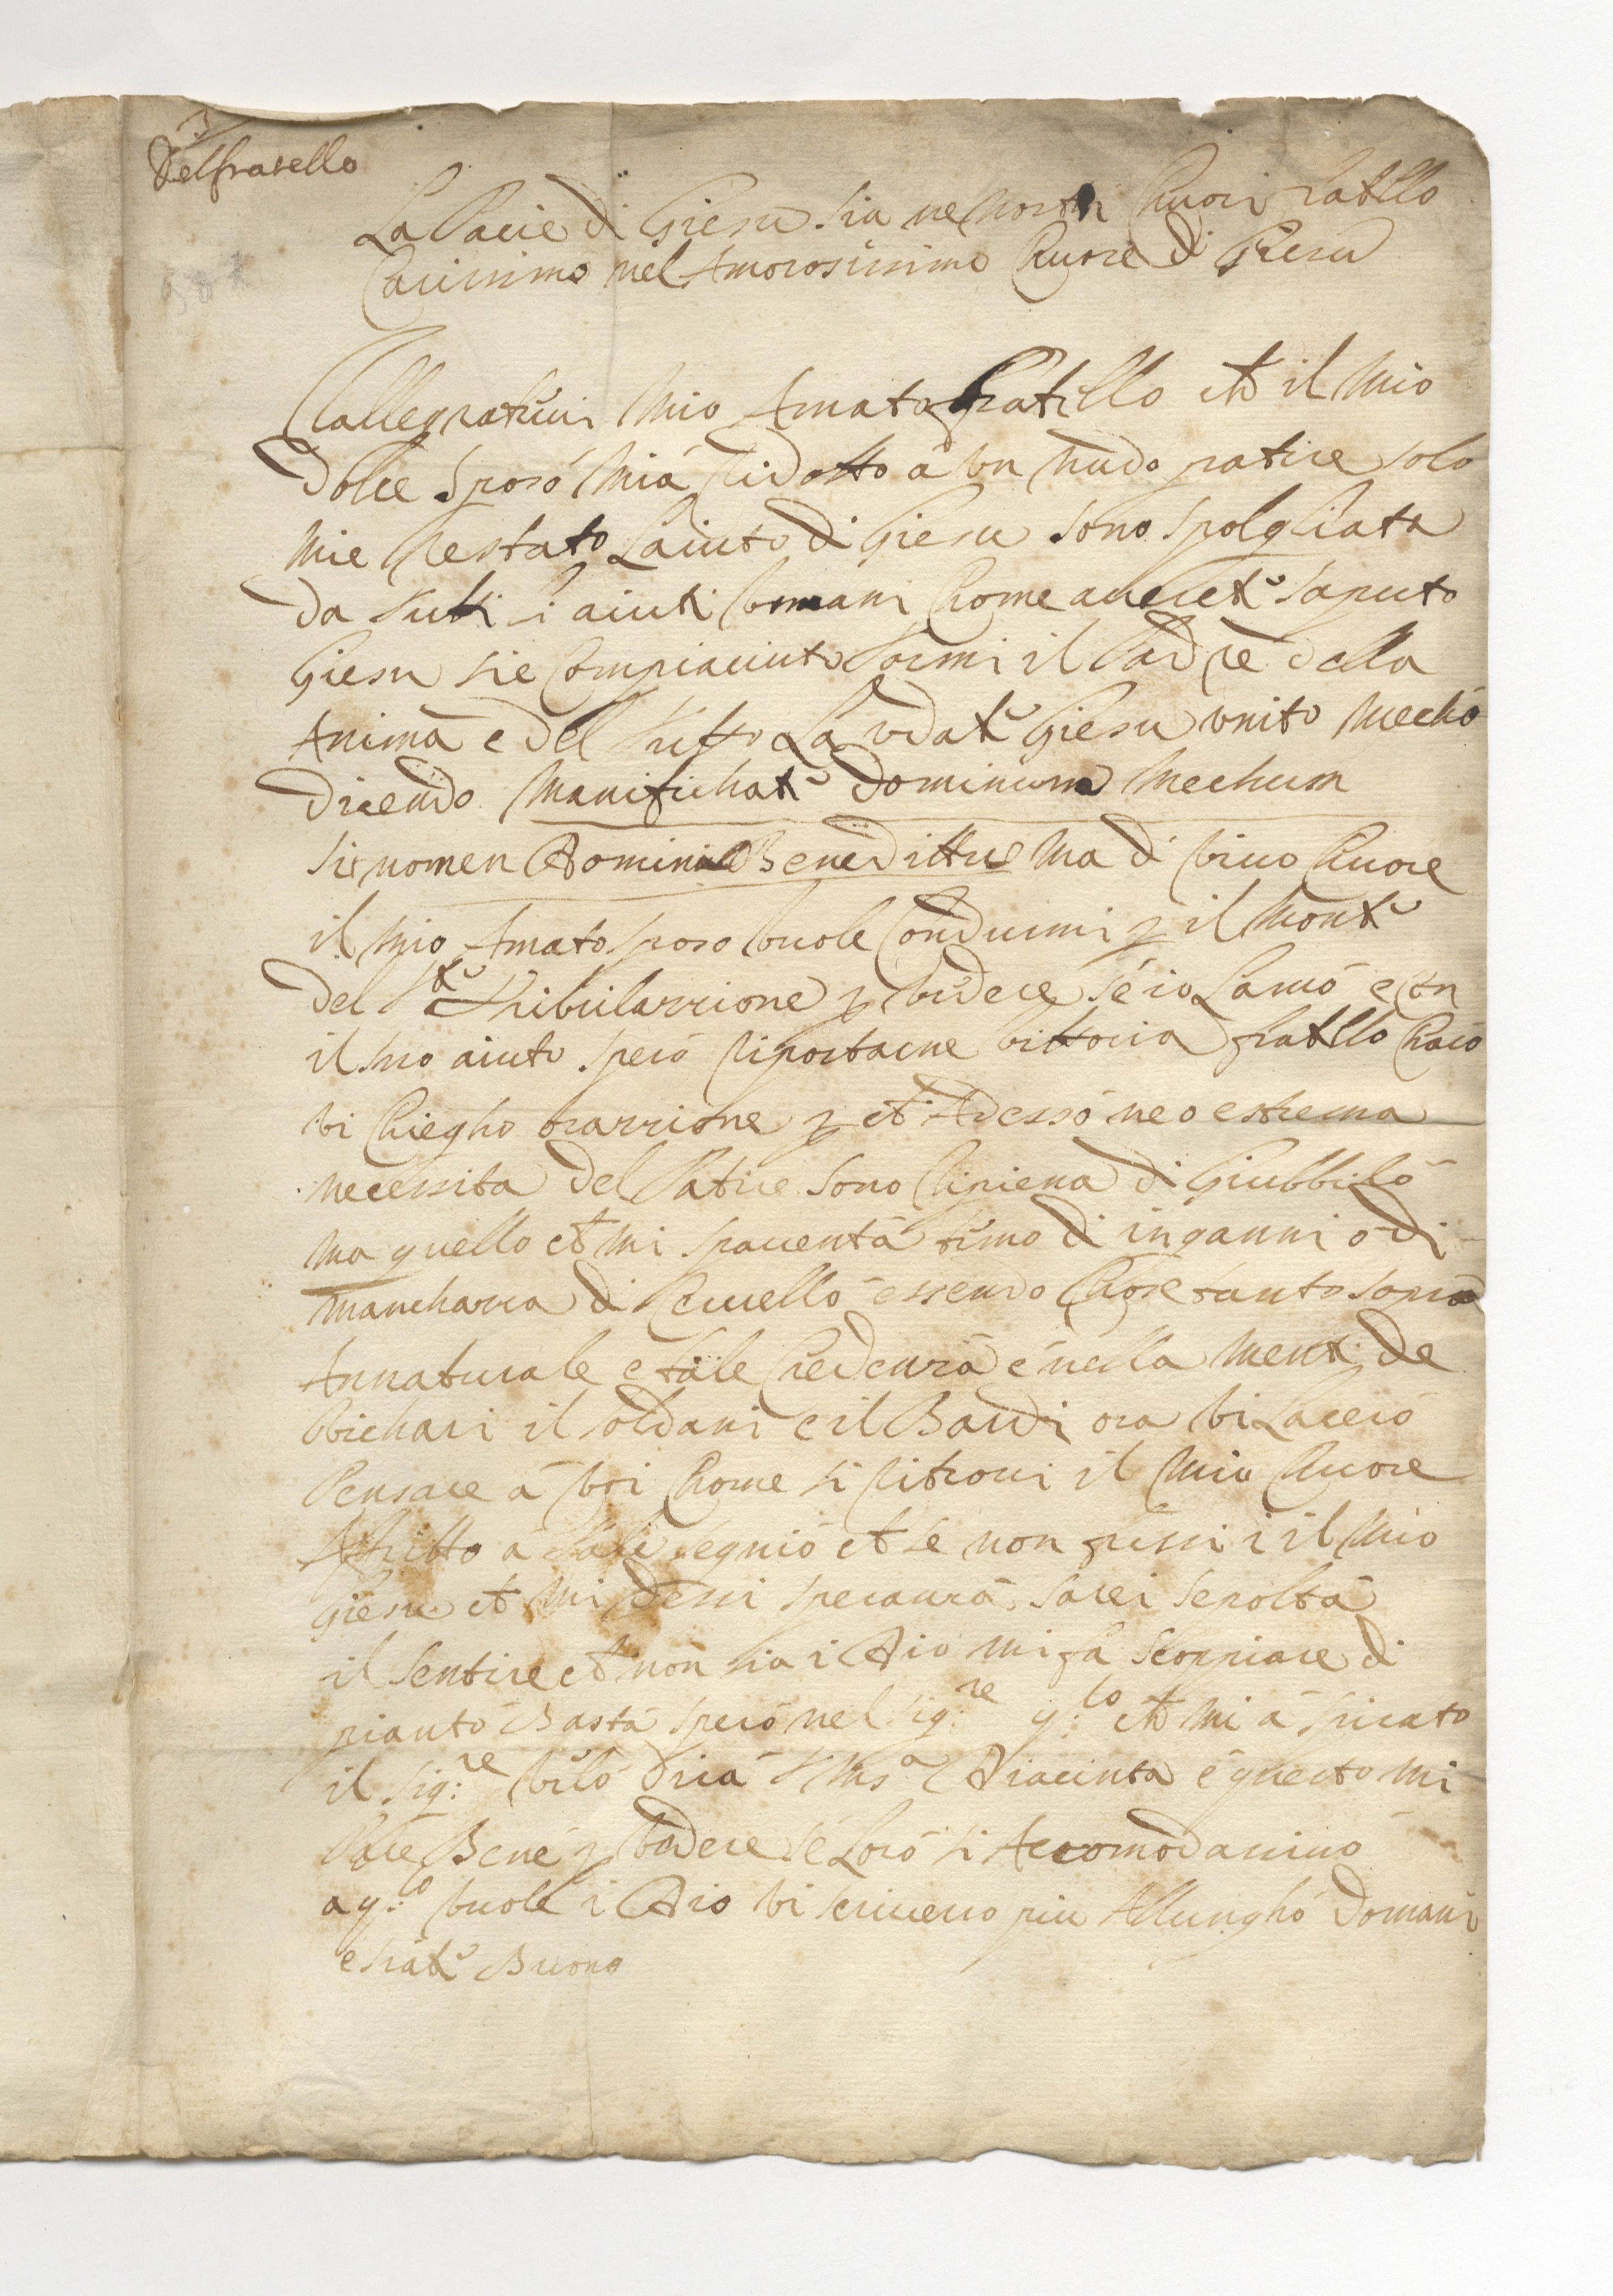 Del fratello
La Pacie di Giesu sia ne nostri Chuori fratello
Carissimo nel Amorosissimo Chuore di Giesu
Rallegratevi mio Amato fratello che il mio
dolce sposo mia ridotto a un nudo patire solo
mie restato Laiuto di Giesu sono spolgliata
da tutti li aiuti umani Chome averete saputo
Giesu sie Compiaciuto tormi il Padre della
Anima e del tutto La vdate Giesu vnito mecho
dicendo manifichate dominum mechum
sit nomen Domini Benedittue ma di vivo Chuore
il mio Amato sposo vuole Condurmi p il monte
del te tribulazzione p vedere se io Lamo e con
il suo aiuto spero riportarne vittoria fratello Charo
vi Chiegho orazzione p che Adesso ne o estrema
necessita del Patire sono ripiena di Giubbilo
ma quello che mi spaventa timo di inganni o di
manchanza di Cervello essendo Chose tanto sopra
Annaturale e tale Credenza e nella mente de
Vichari il soldani e il Bardi ora vi Lacero
Pensare a voi Chome si ritrovi il mio Chuore
Afritto a tale segnio che se non fussi i il mio
Giesu che mi dessi speranza sarei sepolta
il sentire che non sia i Dio mi fa scoppiare di
pianto Basta spero nel sig:re q:to che mi a spirato
il sig:re velo dira Diacinta e questo mi
Pare Bene p vedere se Loro si Accomodassino
a q:o vuole i Dio vi scrivero piu Allungho domani
e state Buono